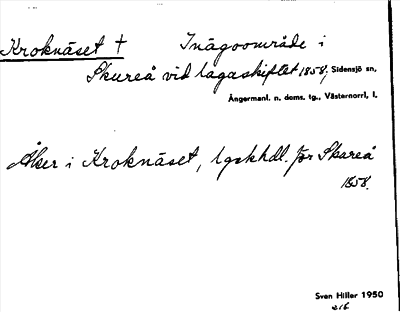 Kroknäset † Inägoområde i
Skureå vid lagaskiftet 1858, Sidensjö sn,
Ångermanl. n. doms. tg., Västernorrl, l.
Åker i Kroknäset, lgskhdl. för Skareå
1858.
Sven Hiller 1950
216